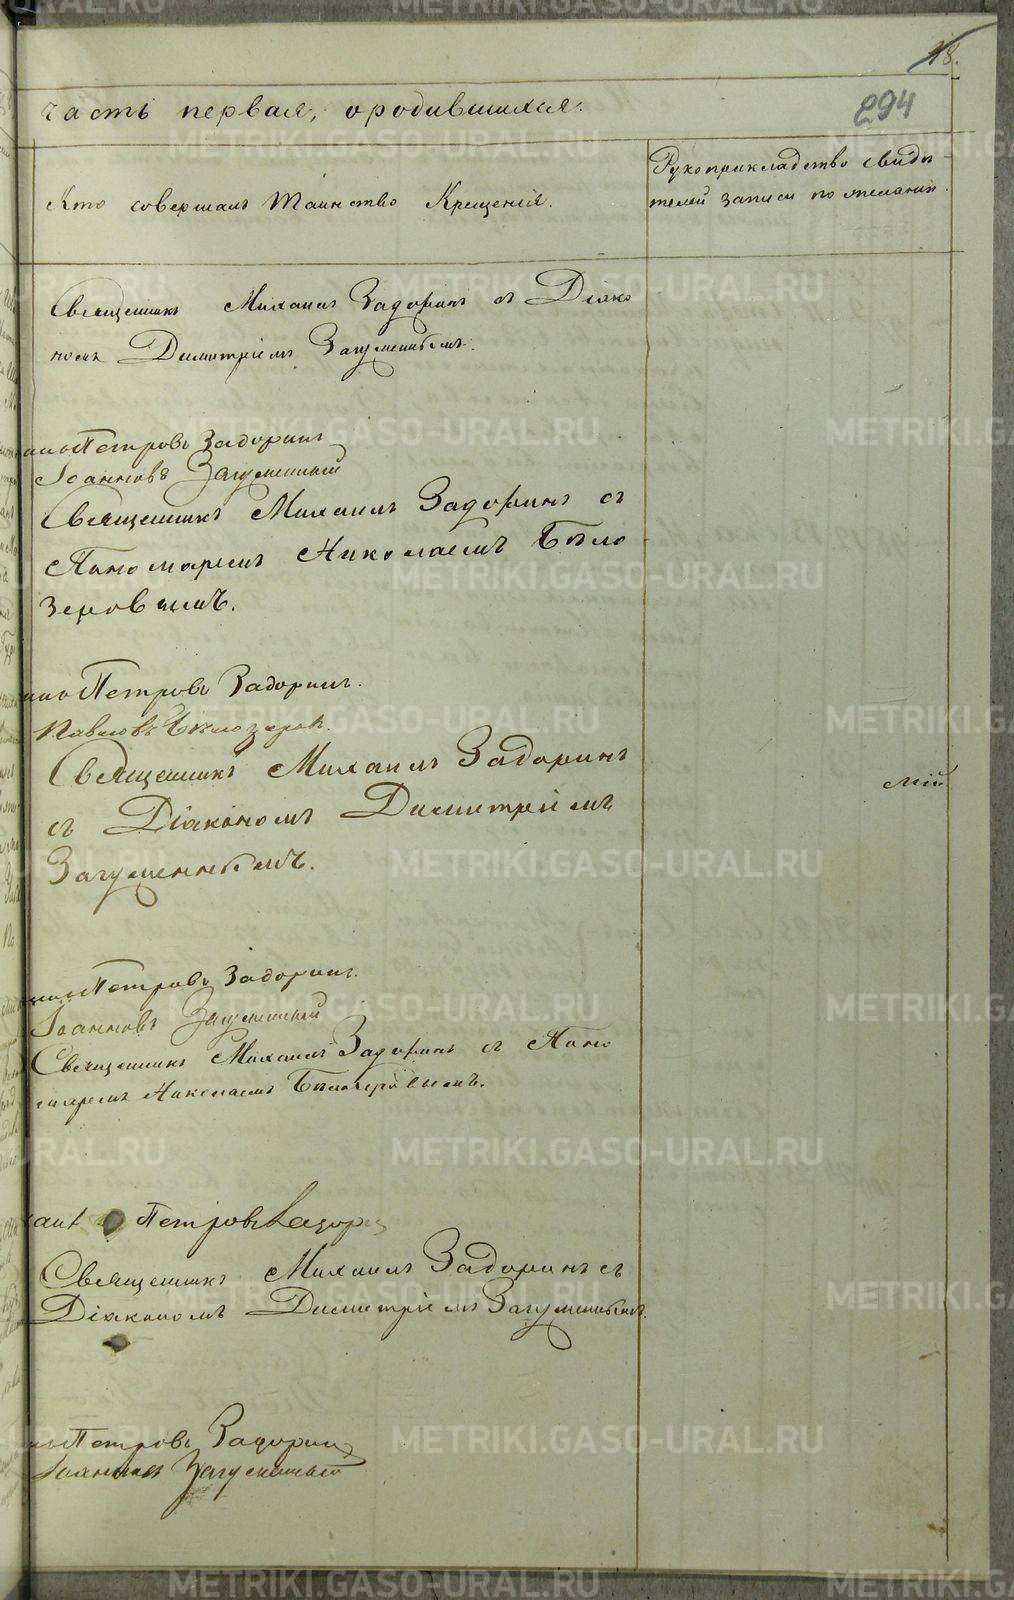 18.
294
часть первая, о родившихся.
Кто совершалъ Таинство Крещенія.
Рукоприкладство свидѣ
телей записи по желанію.
Священникъ Михаилъ Задоринъ съ Діако
номъ Димитріемъ Загуменнымъ.
Петровъ Задоринъ
Іоанновъ Загуменный
Священникъ Михаилъ Задоринъ съ
Пономаремъ Николаемъ Бѣло
зеровымъ.
Петровъ Задоринъ.
Павловъ Бѣлозеровъ.
Священникъ Михаилъ Задоринъ
съ Діакономъ Димитріемъ
Загуменнымъ.
Петровъ Задоринъ.
Іоанновъ Загуменный
Священникъ Михаилъ Задоринъ съ Поно
маремъ Николаемъ Бѣлозеровымъ.
Петровъ Задор
Священникъ Михаилъ Задоринъ съ
Діакономъ Димитріемъ Загуменнымъ.
Петровъ Задоринъ
Іоанновъ Загуменный
METRIKI.GASO-URAL.RU